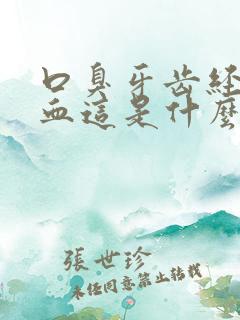 口臭牙齿经
血這是什麼
張世珍
未经同意禁止转载